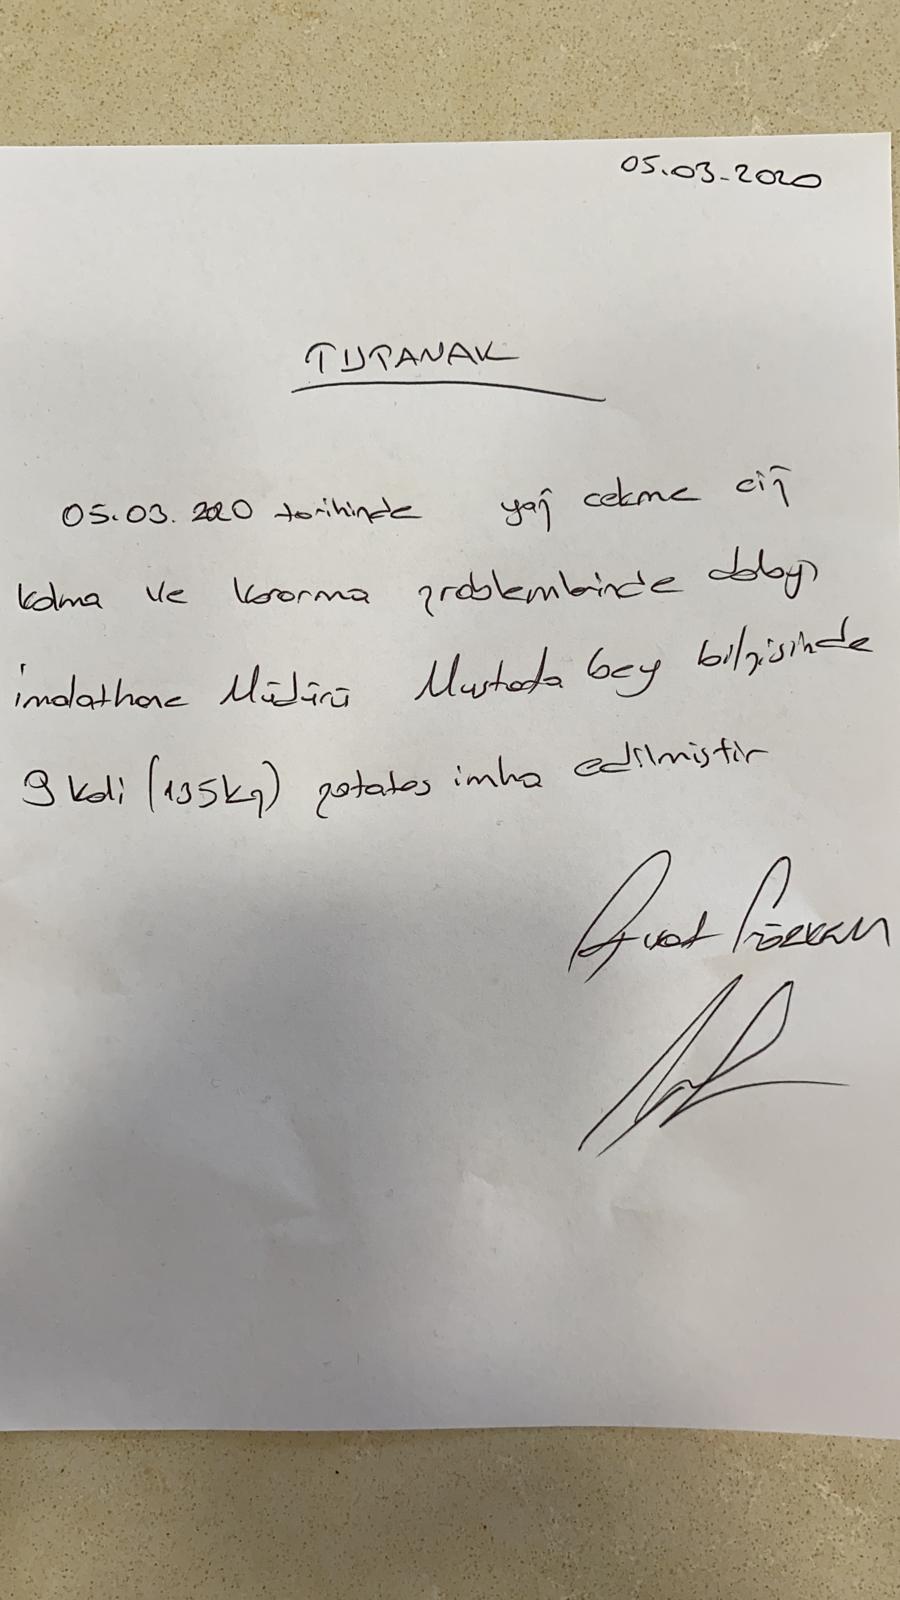 05.03.2020
TUTANAK
05.03.2020 tarihinde yağ cekme ciğ
kalma ve kararma problemlerinde dolayı
imalathane Müdürü Mustafa bey bilgisinde
9 koli (135kg) patates imha edilmiştir